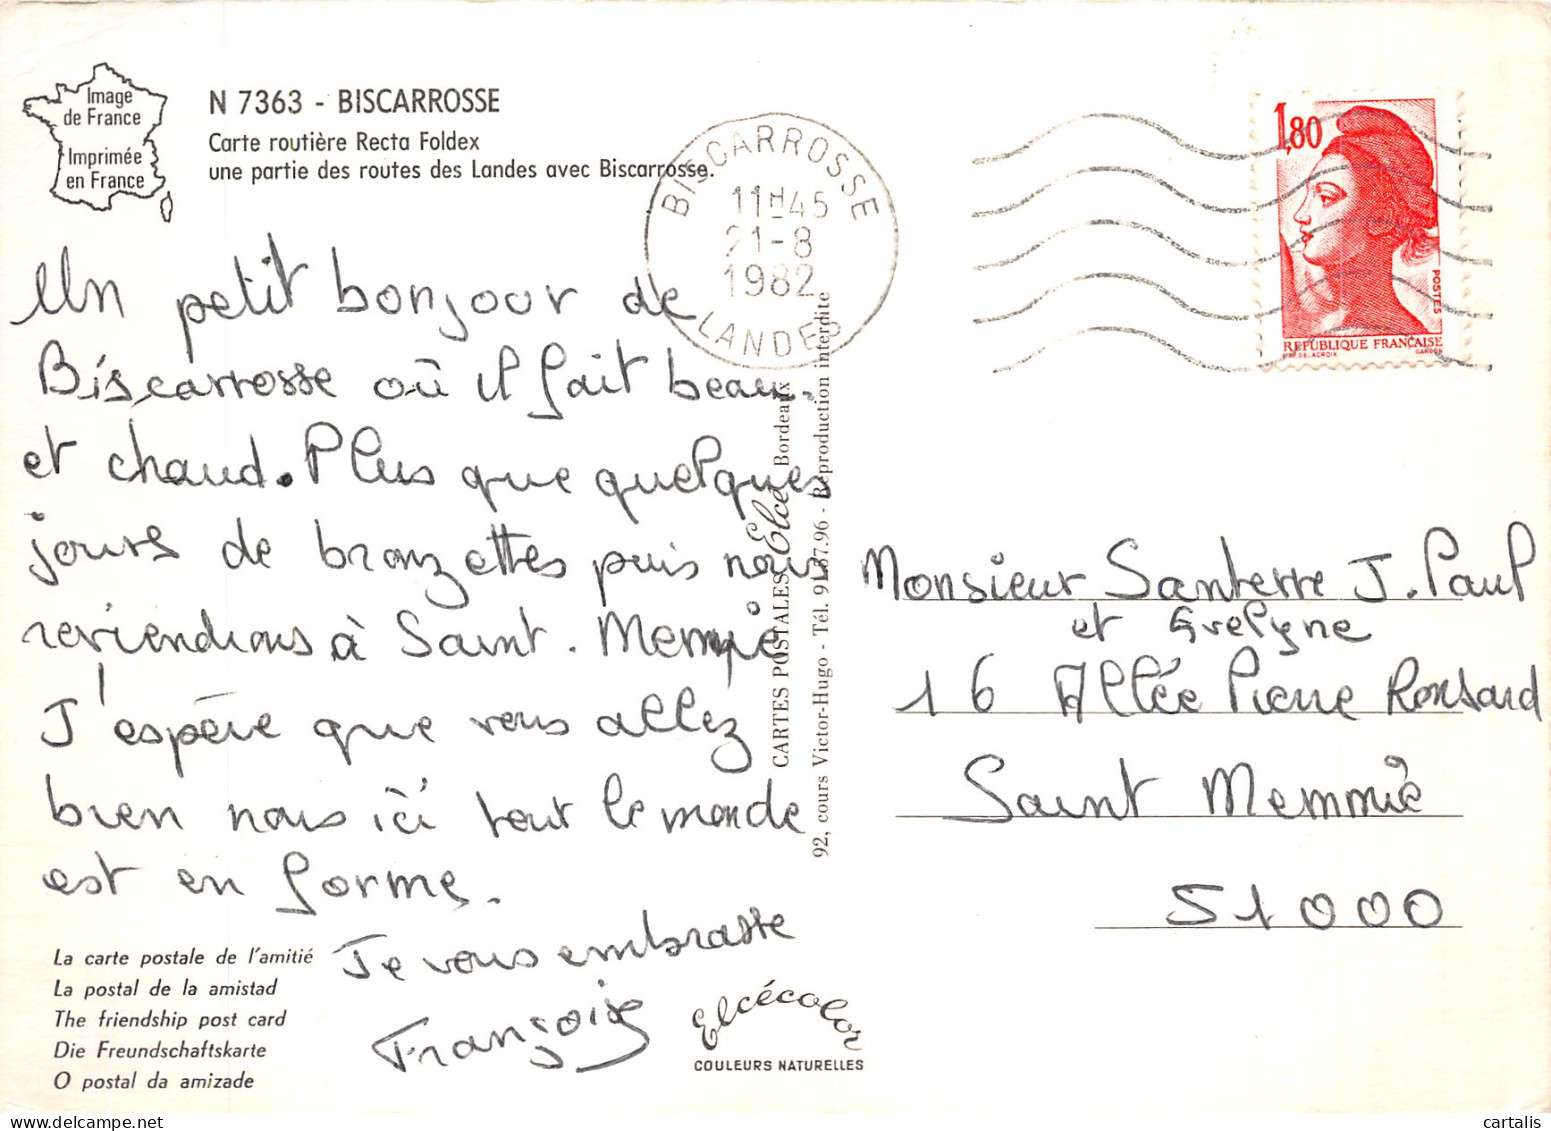 Image
de France
Imprimée
en France
N 7363 - BISCARROSSE
Carte routière Recta Foldex
une partie des routes des Landes avec Biscarrosse.
BISCARROSSE
11H45
21-8
1982
LANDES
1,80
POSTES
REPUBLIQUE FRANÇAISE
D'AP. DELACROIX GANDON
Un petit bonjour de
Biscarrosse où il fait beau.
et chaud. Plus que quelques
jours de bronzettes puis nous
reviendrons à Saint. Memmie
J'espère que vous allez
bien nous ici tout le monde
est en forme.
Je vous embrasse
Françoise
CARTES POSTALES Elcé Bordeaux
92, cours Victor-Hugo - Tél. 91.37.96 - Reproduction interdite
Monsieur Santerre J. Paul
et Evelyne
16 Allée Pierre Ronsard
Saint Memmie
51000
La carte postale de l'amitié
La postal de la amistad
The friendship post card
Die Freundschaftskarte
O postal da amizade
Elcécolor
COULEURS NATURELLES
cartalis